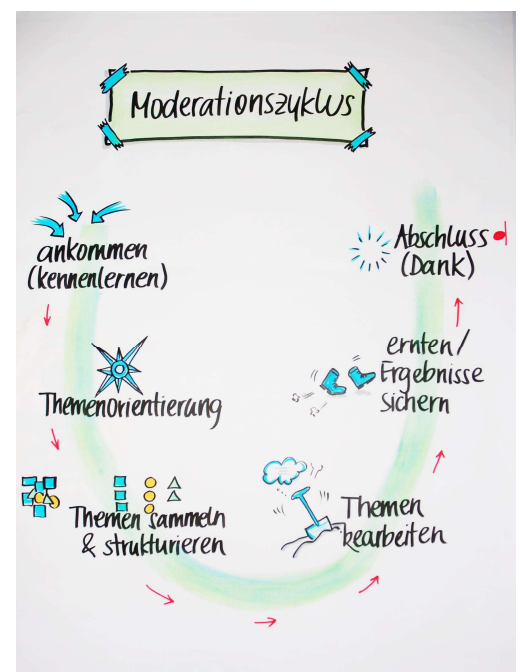 Moderationszyklus
ankommen
(kennenlernen)
Themenorientierung
Themen sammeln
& strukturieren
Themen
bearbeiten
ernten/
Ergebnisse
sichern
Abschluss
(Dank)